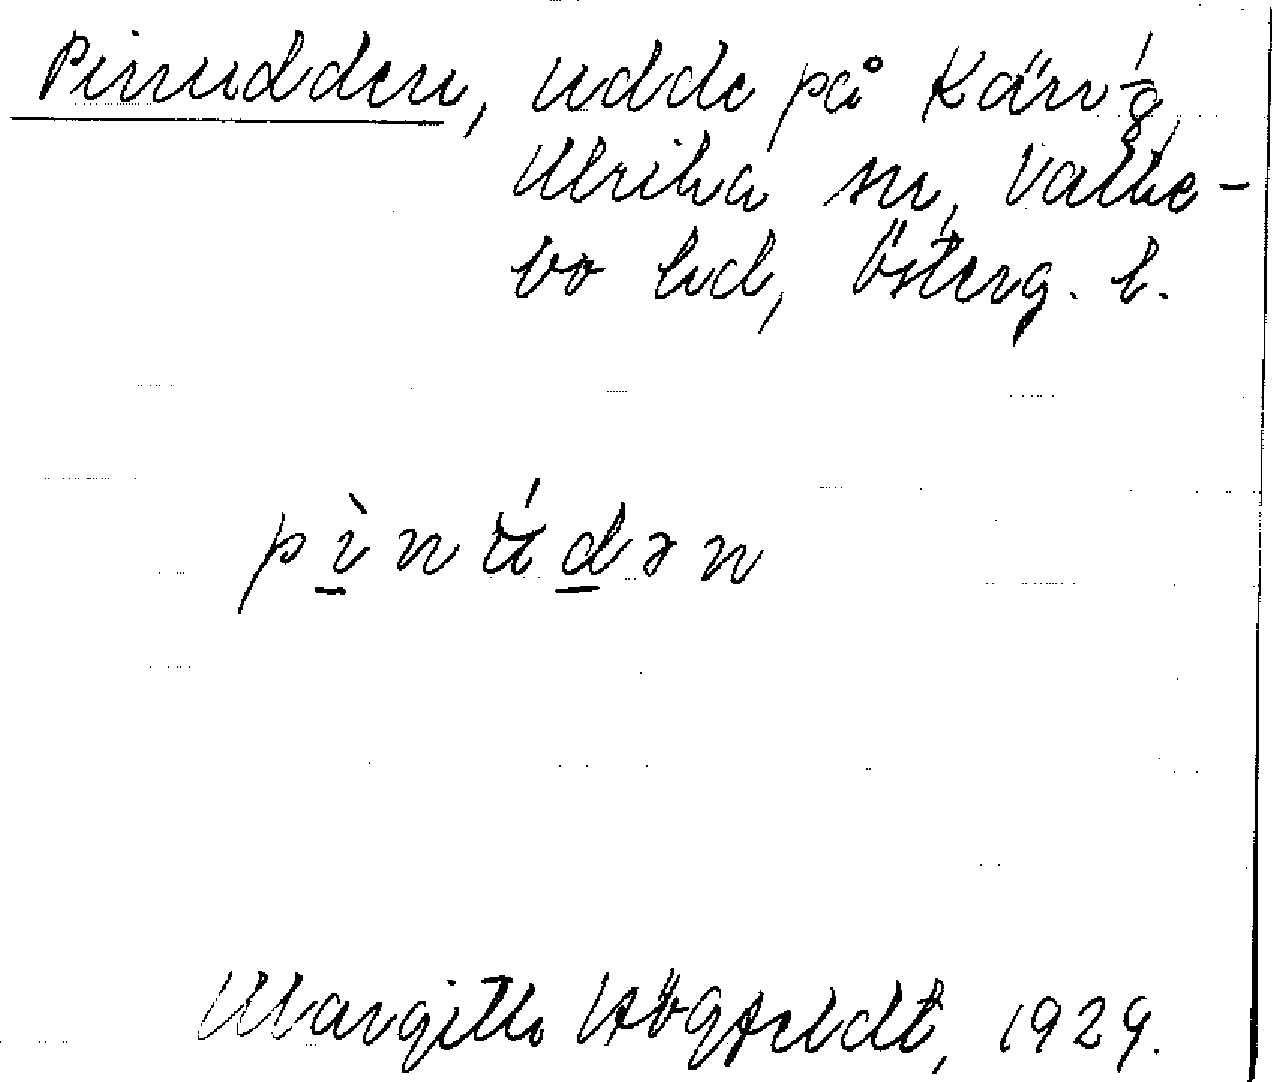 Pinudden, udde på Kärn 1/8,
Ulrika sn, Valke-
bo hd, Österg. l.
pìnúdən
Margitta Högfeldt, 1929.